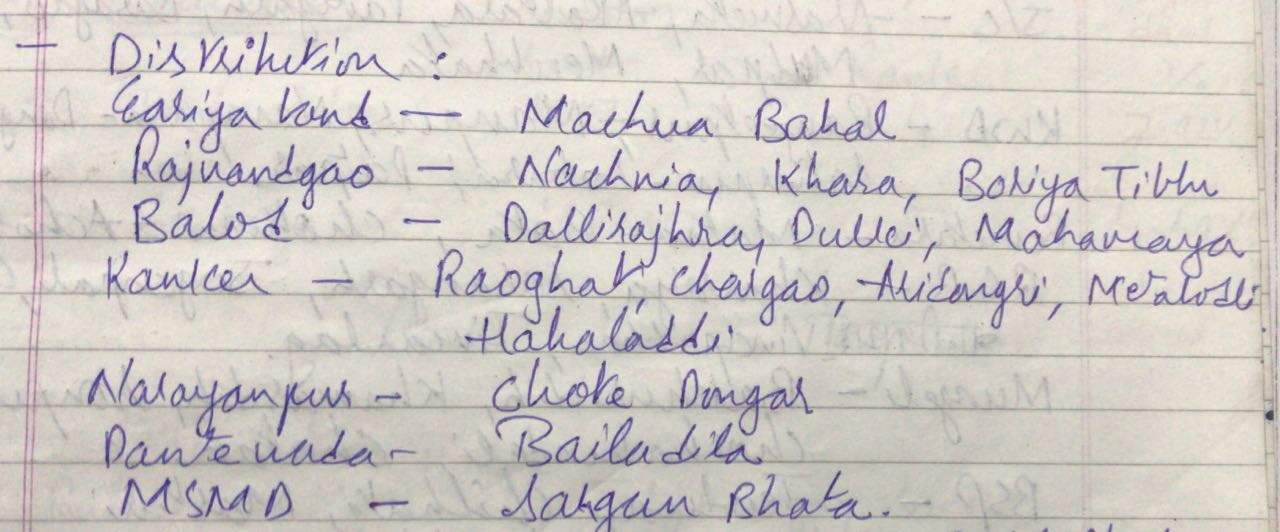 — Distribution :
Gariyaband — Machua Bahal
Rajnandgao — Nachnia, Khara, Boriya Tibbu
Balod — Dallirajhra, Dulki, Mahamaya
Kanker — Raoghat, Chargao, Aridongri, Metabodli
Hahaladdi
Narayanpur - Chote Dongar
Dantewada - Bailadila
MSMD — Satgun Bhata.